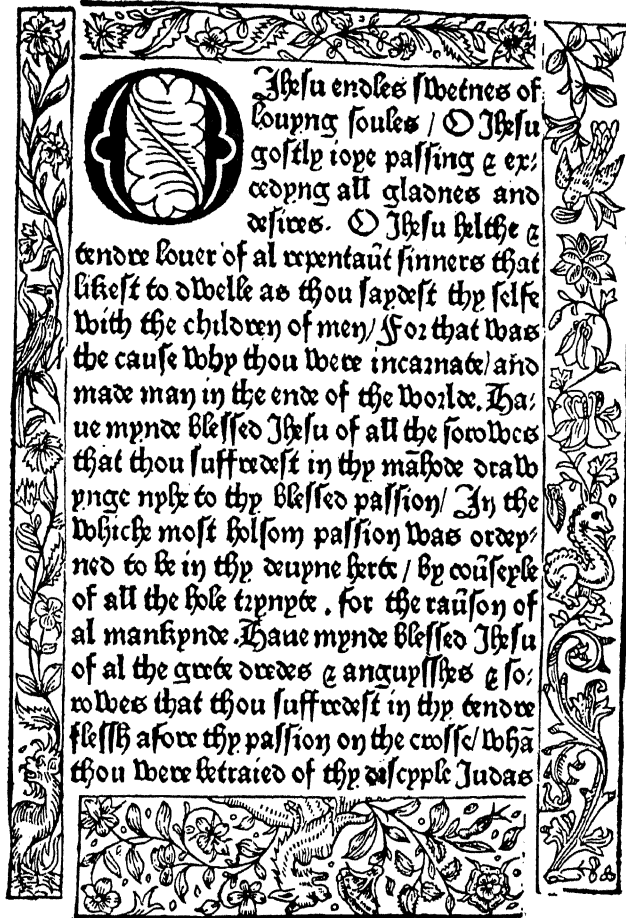 O Ihesu endles swetnes of
louyng soules / O Ihesu
gostly ioye passing & ex⸗
cedyng all gladnes and
desires. O Ihesu helthe &
tendre louer of al repentaūt sinners that
likest to dwelle as thou saydest thy selfe
with the children of men/ For that was
the cause why thou were incarnate/ and
made man in the ende of the worlde. Ha⸗
ue mynde blessed Ihesu of all the sorowes
that thou suffredest in thy māhode draw
ynge nyhe to thy blessed passion/ In the
whiche most holsom passion was ordey⸗
ned to be in thy deuyne herte / by coūseyle
of all the hole trynyte . for the raūson of
al mankynde . Haue mynde blessed Ihesu
of al the grete dredes & anguysshes & so⸗
rowes that thou suffredest in thy tendre
flessh afore thy passion on the crosse/ whā
thou were betraied of thy discyple Judas